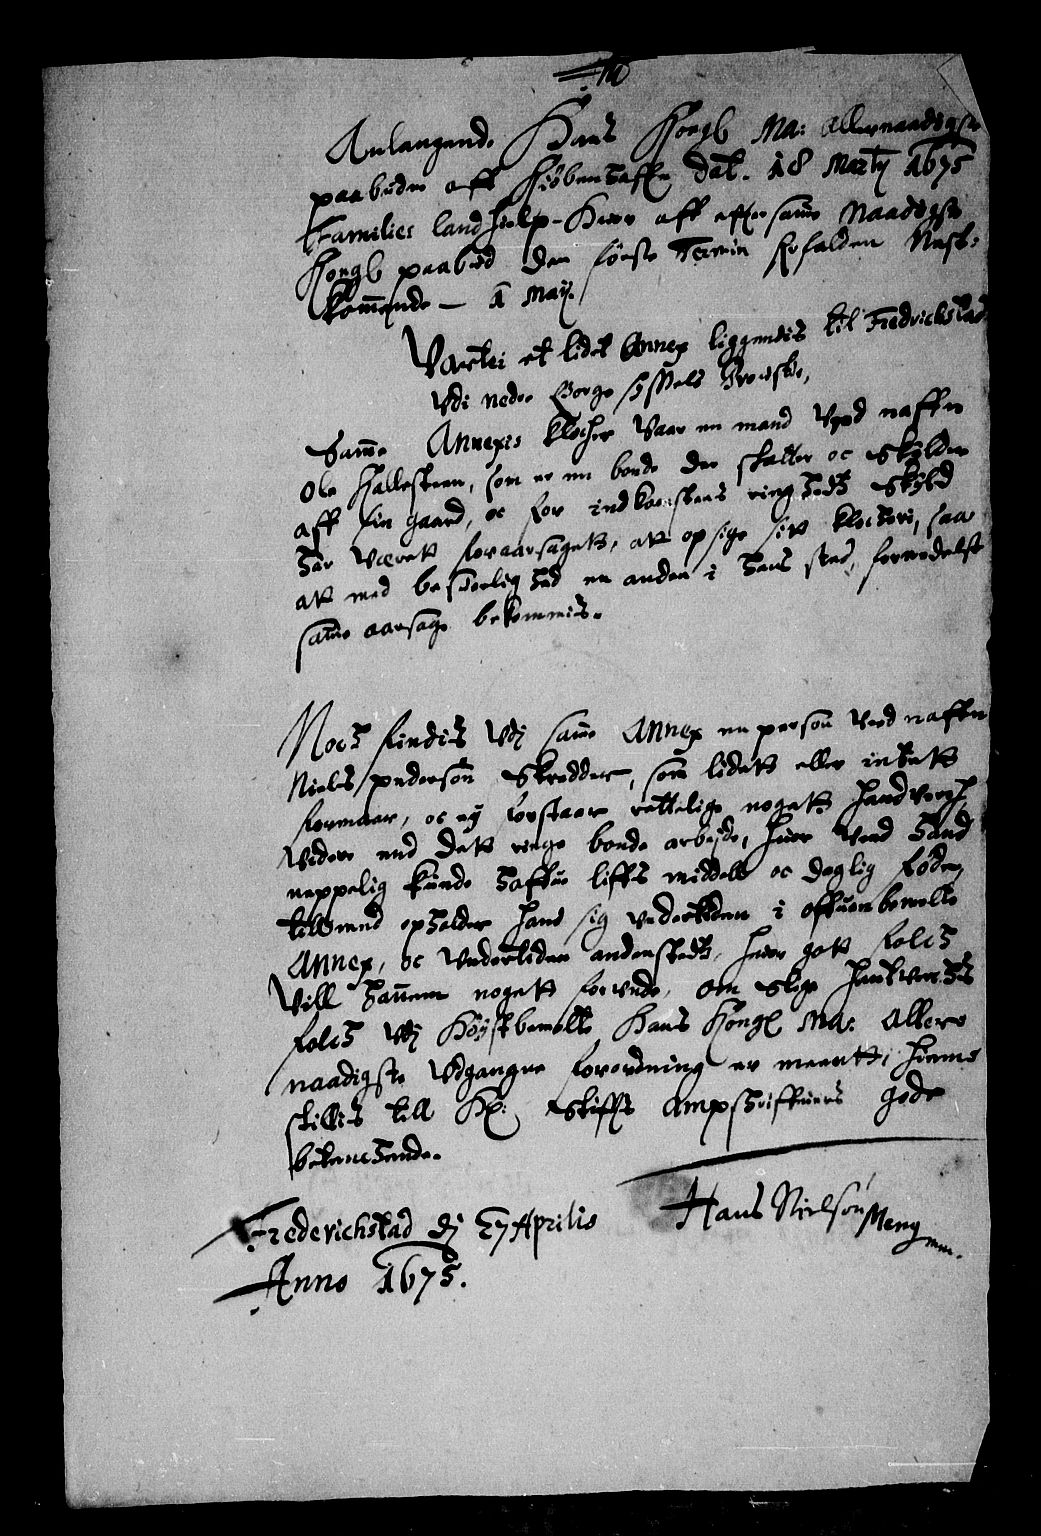 Anlangende Hans Kongl Ma: allernaadigste
paabuden aff Kiøbenhaffn dat. 18 Marty 1675
Families land hielp-huor aff effter samme Naadigste
Kongl paabud den første Termin Erfalden Nest-
kommende — 1 May.
Varteei et lidet Annex liggendis til Fredrichstad
Udi neder Borge syssels Provstie,
Samme Annexis klocher Vaar en mand Ved naffn
Ole Hallesteen, som er en bonde der skatter oc Skylder
aff sin gaard, oc for indkomstens ringhedtz Skyld
har Verett foraarsagett, att opsige sit klockeri, saa
att med besverlighed en anden i hans sted, formedelst
samme aarsage bekommis.
Noch findis Udj samme Annex en person Ved naffn
Niels pedersøn Skredder, som lidett eller intett
formaar, oc ey forstaar rettelige nogett handverch
Videre end dett ringe bonde arbejde, huor Ved hand
neppelig kunde haffue liffs middell oc daglig føde,
tilmed opholder hand sig undertiden i offuenbemelte
Annex, oc Undertiden andenstedtz, huor gott folch
Vill hannem nogett forunde, om slige handverchs
folch Udj Høystbemelte Hans Kongl Ma: Allere
naadigste Udgangne forordning er meentt, henne
stillis till Hr: Stiffts Ampschriffuers gode
betenchende.
Frederichstad dj 27 Aprilis
Anno 1675.
Hans Nielsøn Meng
mm.